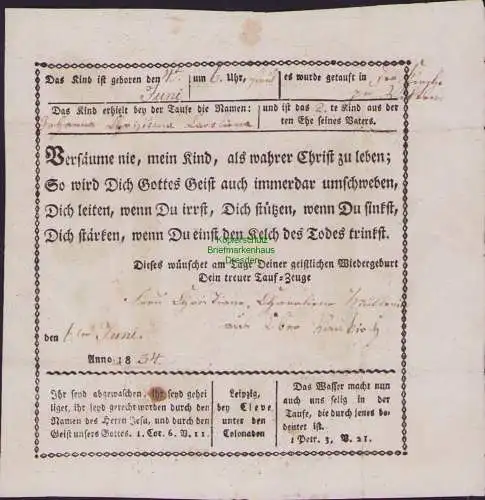 Das Kind ist geboren den 4t um 6. Uhr, es wurde getauft in der Kirche
Juni
Das Kind erhielt bey der Taufe die Namen: und ist das 2. te Kind aus der
Johanna Christiana Carolina ten Ehe seines Vaters.
Versäume nie, mein Kind, als wahrer Christ zu leben;
So wird Dich Gottes Geist auch immerdar umschweben,
Dich leiten, wenn Du irrst, Dich stützen, wenn Du sinkst,
Dich stärken, wenn Du einst den Kelch des Todes trinkst.
Kopierschutz
Briefmarkenhaus
Dresden
Dieses wünschet am Tage Deiner geistlichen Wiedergeburt
Dein treuer Tauf-Zeuge
Frau
aus Ober
den Juni.
Anno 1834
Ihr seyd abgewaschen, Ihr seyd gehei
liget, ihr seyd gerecht worden durch den
Namen des Herrn Jesu, und durch den
Geist unsers Gottes. 1. Cor. 6. V. 11.
Leipzig,
bey Cleve
unter den
Colonaden
Das Wasser macht nun
auch uns selig in der
Taufe, die durch jenes be-
deutet ist.
1 Petr. 3, V. 21.